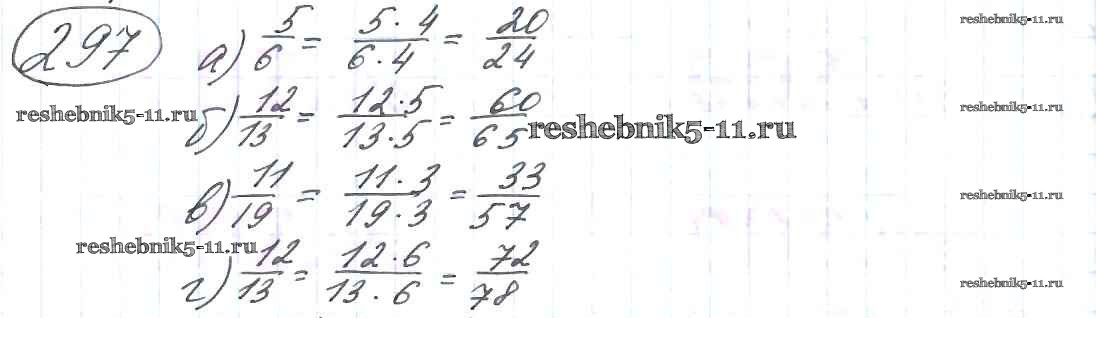 297
а) 5/6 = 5·4/6·4 = 20/24
reshebnik5-11.ru
reshebnik5-11.ru
б) 12/13 = 12·5/13·5 = 60/65
reshebnik5-11.ru
reshebnik5-11.ru
в) 11/19 = 11·3/19·3 = 33/57
reshebnik5-11.ru
reshebnik5-11.ru
г) 12/13 = 12·6/13·6 = 72/78
reshebnik5-11.ru